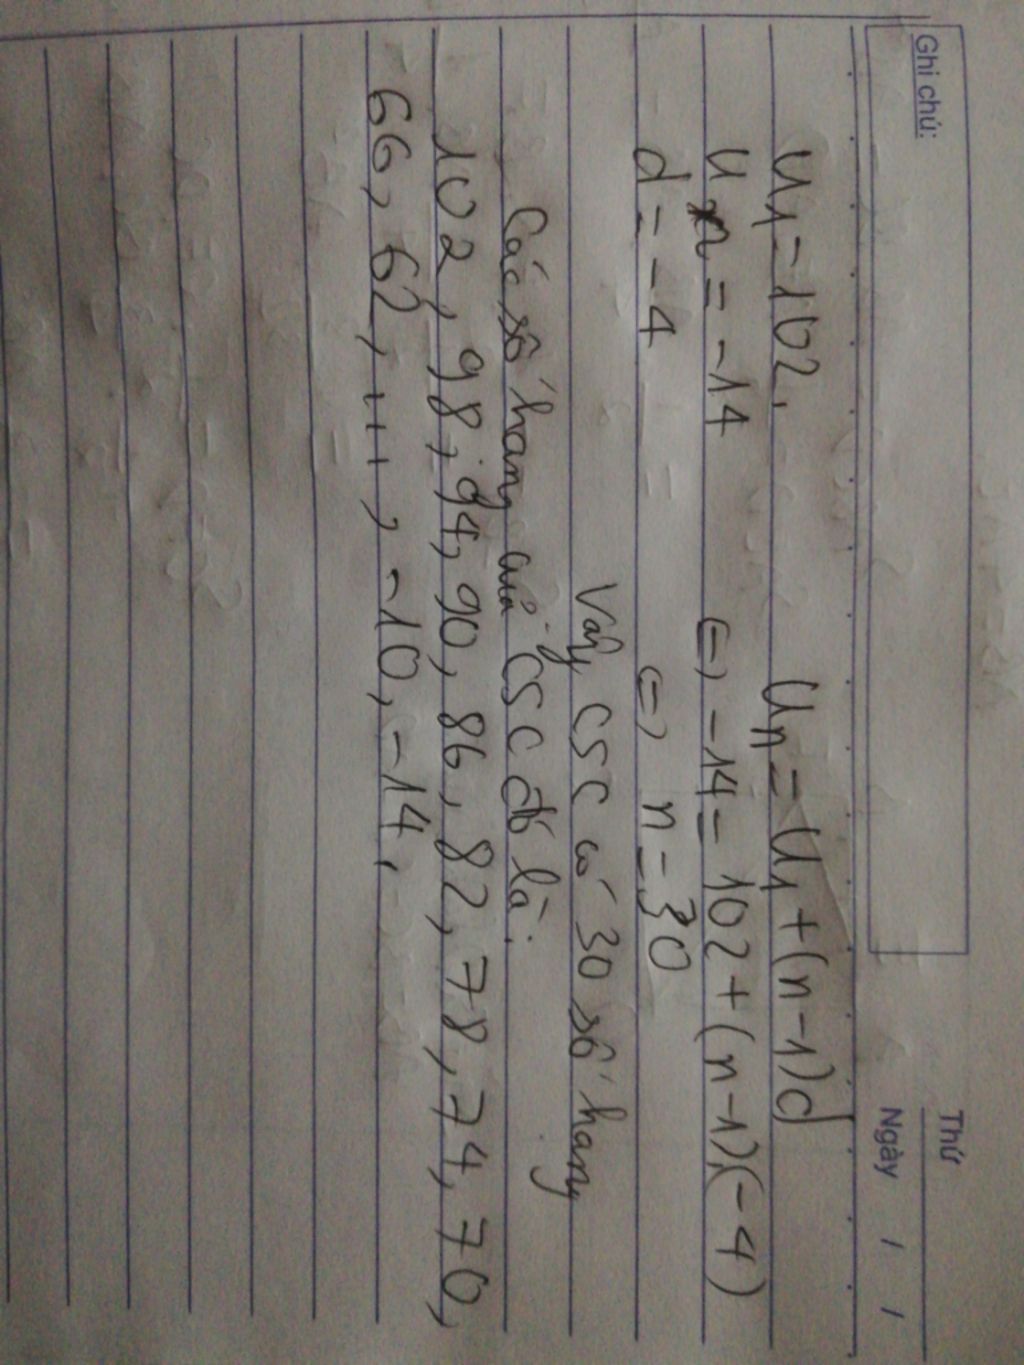 Thứ
Ghi chú:
Ngày / /
U1 = 102. Un = U1 + (n-1)d
Un = -14 (=) -14 = 102 + (n-1)(-4)
d = -4 (=) n = 30
Vậy CSC có 30 số hạng
Các số hạng của CSC đó là:
102, 98, 94, 90, 86, 82, 78, 74, 70,
66, 62, ..., -10, -14.